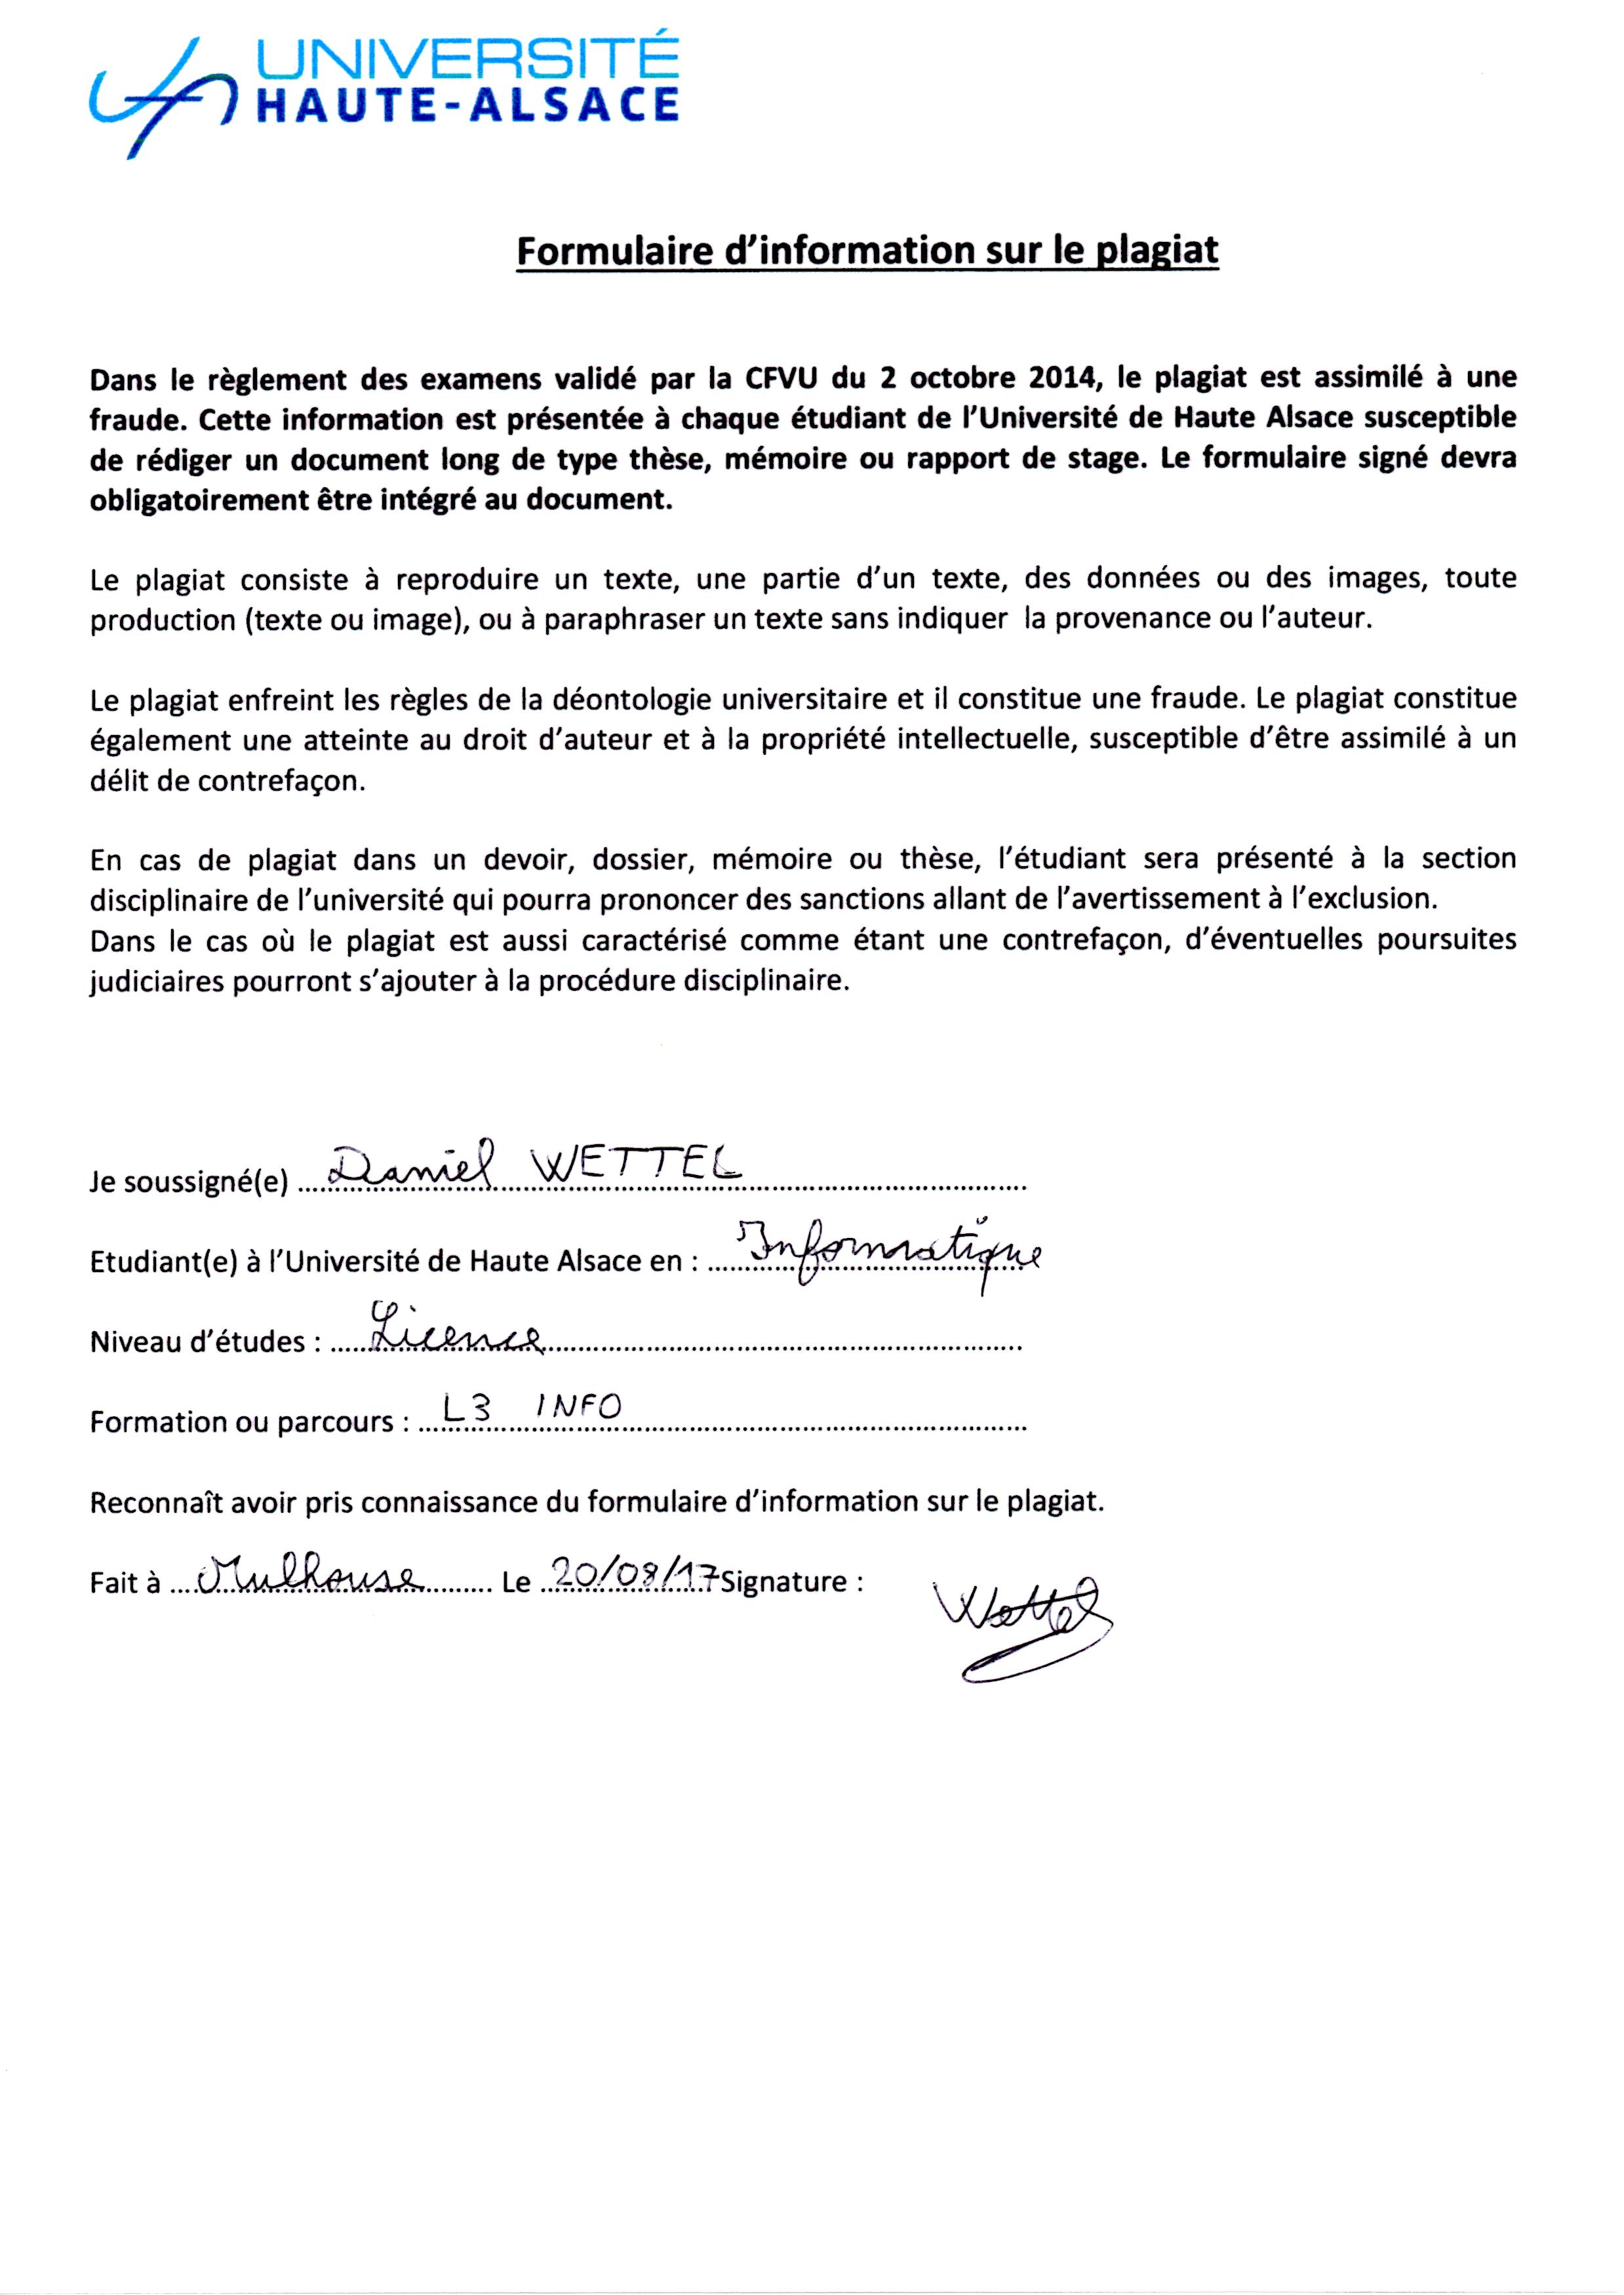 UNIVERSITÉ
HAUTE-ALSACE
Formulaire d’information sur le plagiat
Dans le règlement des examens validé par la CFVU du 2 octobre 2014, le plagiat est assimilé à une
fraude. Cette information est présentée à chaque étudiant de l’Université de Haute Alsace susceptible
de rédiger un document long de type thèse, mémoire ou rapport de stage. Le formulaire signé devra
obligatoirement être intégré au document.
Le plagiat consiste à reproduire un texte, une partie d’un texte, des données ou des images, toute
production (texte ou image), ou à paraphraser un texte sans indiquer la provenance ou l’auteur.
Le plagiat enfreint les règles de la déontologie universitaire et il constitue une fraude. Le plagiat constitue
également une atteinte au droit d’auteur et à la propriété intellectuelle, susceptible d’être assimilé à un
délit de contrefaçon.
En cas de plagiat dans un devoir, dossier, mémoire ou thèse, l’étudiant sera présenté à la section
disciplinaire de l’université qui pourra prononcer des sanctions allant de l’avertissement à l’exclusion.
Dans le cas où le plagiat est aussi caractérisé comme étant une contrefaçon, d’éventuelles poursuites
judiciaires pourront s’ajouter à la procédure disciplinaire.
Je soussigné(e) Daniel WETTEL
Etudiant(e) à l’Université de Haute Alsace en : Informatique
Niveau d’études : Licence
Formation ou parcours : L3 INFO
Reconnaît avoir pris connaissance du formulaire d’information sur le plagiat.
Fait à Mulhouse Le 20/08/17 Signature :
Wettel